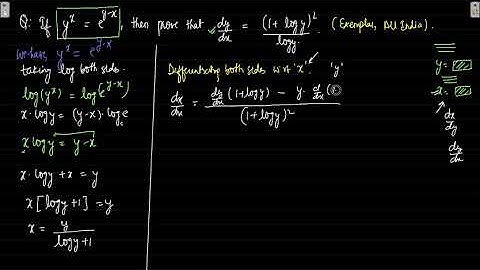 Q: If y^x = e^{y-x}, then prove that dy/dx = (1+logy)^2 / logy. (Exemplar, All India).
We have, y^x = e^{y-x}
taking log both sides.
log(y^x) = log(e^{y-x})
x·logy = (y-x)·loge
x logy = y-x
x·logy + x = y
x[logy+1] = y
x = y / logy+1
Differentiating both sides w.r.t 'x'. 'y'
dx/dx = dy/dx (1+logy) - y· d/dx ( / (1+logy)^2
y =
x =
dx/dy
dy/dx